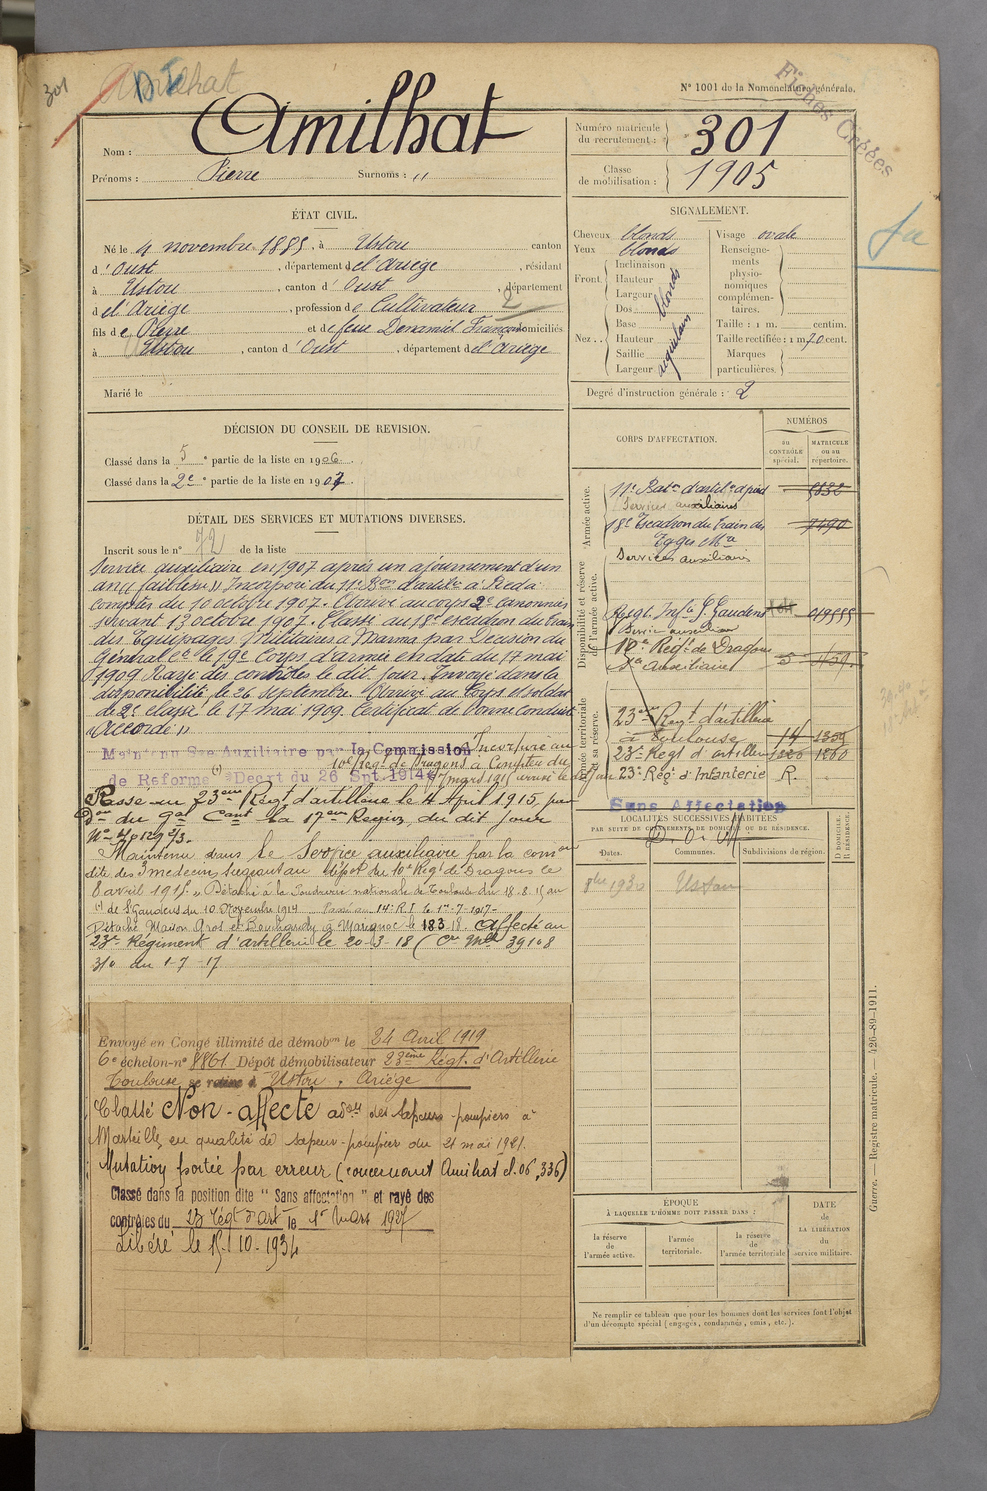 301
Amilhat
N° 1001 de la Nomenclature générale.
Fiches Créées
Nom : Amilhat
Prénoms : Pierre Surnoms : "
Numéro matricule du recrutement : 301
Classe de mobilisation : 1905
ÉTAT CIVIL.
Né le 4 novembre 1885, à Ustou canton
d'Oust, département de l'Ariège, résidant
à Ustou, canton d'Oust, département
de l'Ariège, profession de Cultivateur
fils de Pierre et de feue Denamiel Françoise domiciliés
à Ustou, canton d'Oust, département de l'Ariège
Marié le
SIGNALEMENT.
Cheveux blonds Visage ovale
Yeux blonds
Front. Inclinaison
Hauteur
Largeur
blonds
Nez .. Dos
Base
Hauteur
Saillie
Largeur
Renseignements physionomiques complémentaires.
Taille : 1 m. centim.
Taille rectifiée : 1 m. 70 cent.
Marques particulières.
Degré d'instruction générale : 2
DÉCISION DU CONSEIL DE REVISION.
Classé dans la 5e partie de la liste en 1906.
Classé dans la 2e partie de la liste en 1907
DÉTAIL DES SERVICES ET MUTATIONS DIVERSES.
Inscrit sous le n° 72 de la liste
Service auxiliaire en 1907 après un ajournement d'un
an (( faiblesse )) Incorporé du 11e Bon d'artilie à Pied à
compter du 10 octobre 1907. Arrivé au corps 2e canonnier
servant 13 octobre 1907. Classé au 18e escadron du train
des Equipages Militaires à Marma par Décision du
Général Ct le 19e Corps d'armée en date du 17 mai
1909 Rayé des contrôles le dit jour. Envoyé dans la
disponibilité le 26 septembre. Arrivé au Corps et soldat
de 2e classe le 17 mai 1909. Certificat de bonne conduite
"Accordé"
Maintenu Sce Auxiliaire par la Commission Incorporé au
10e Rég. de Dragons à Compter du
de Reforme Decrt du 26 Spt. 1914 7 mars 1915 arrivé le dit jour
Passé au 23eme Régt d'artillerie le 4 April 1915, par
Don du gal Cant la 17eme Region, du dit jour
No 4012 9/3.
Maintenu dans le Service auxiliaire par la comon
dite des 3 medecins siegeant au dépot du 10e Regt de Dragons le
8 avril 1915. Détaché à la Poudrerie nationale de Toulouse du 18.8.15 au
de St Gaudens du 10 Novembre 1914 Passé au 14e R.I le 1er-7-1917-
Détaché Maison Gros et Bouchardy à Marignac le 18 3 18. Affecté au
23e Régiment d'artillerie le 20-3-18 ( Cr Mlle 39108
3/0 du 1-7-17
Envoyé en Congé illimité de démobon le 24 Avril 1919
6e échelon-n° 8861 Dépôt démobilisateur 23ème Régt. d'Artillerie
Toulouse se retire à Ustou, Ariège
Classé Non-affecté des sapeurs-pompiers à
Marseille en qualité de sapeur-pompier du 21 mai 1921.
Mutation portée par erreur (concernant Amilhat cl. 06, 336)
Classé dans la position dite "Sans affectation" et rayé des
contrôles du 23 Régt d'Art le 1er Mars 1927
Libéré le 15.10.1934
CORPS D'AFFECTATION.
NUMÉROS
au CONTRÔLE spécial.
MATRICULE ou au répertoire.
Armée active.
11e Baton d'artilie à pied
Services auxiliaires
18e Escadron du Train des 7490
Eqges Mres
Services auxiliaires
Disponibilité et réserve de l'armée active.
Régt. Infie St Gaudens 019555
Service auxiliaire
10e Regt de Dragons
Sce Auxiliaire
Armée territoriale et sa réserve.
23eme Regt d'artillerie
à Toulouse 14 1359
23e Regt d'artillerie
23e Reg d'Infanterie R.
Sans Affectation
LOCALITÉS SUCCESSIVES HABITÉES
PAR SUITE DE CHANGEMENTS DE DOMICILE OU DE RÉSIDENCE.
Dates. Communes. Subdivisions de région. D DOMICILE. R RÉSIDENCE.
1930 Ustou
ÉPOQUE
À LAQUELLE L'HOMME DOIT PASSER DANS :
la réserve de l'armée active.
l'armée territoriale.
la réserve de l'armée territoriale
DATE DE LA LIBÉRATION du service militaire.
Ne remplir ce tableau que pour les hommes dont les services font l'objet
d'un décompte spécial (engagés, condamnés, omis, etc.).
Guerre. — Registre matricule. — 426-89-1911.